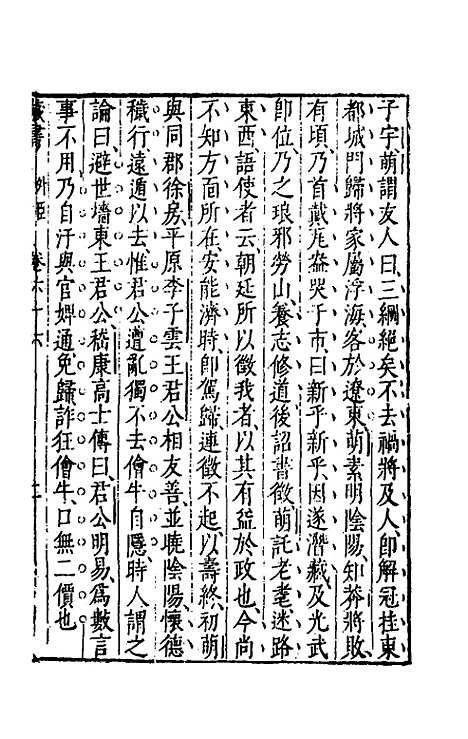 子宇萌謂友人曰三綱絕矣不去禍將及人即解冠挂東
都城門歸將家屬浮海客於遼東萌素明陰陽知莽將敗
有頃乃首戴瓦盎哭于市曰新乎新乎因遂潛藏及光武
卽位乃之琅邪勞山養志修道後詔書徵萌託老耄迷路
東西語使者云朝廷所以徵我者以其有益於政也今尚
不知方面所在安能濟時卽駕歸連徵不起以壽終初萌
與同郡徐房平原李子雲王君公相友善並曉陰陽懷德
穢行遠遁以去惟君公遭亂獨不去儈牛自隱時人謂之
論曰避世墻東王君公嵇康高士傳曰君公明易爲數言
事不用乃自汙與官婢通免歸詐狂儈牛口無二價也
藏書 外臣 卷六十六 二